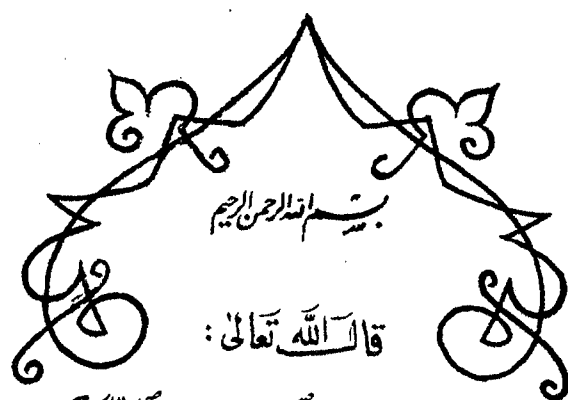 بسم الله الرحمن الرحيم
قَالَ اللَّهُ تَعَالَىٰ :